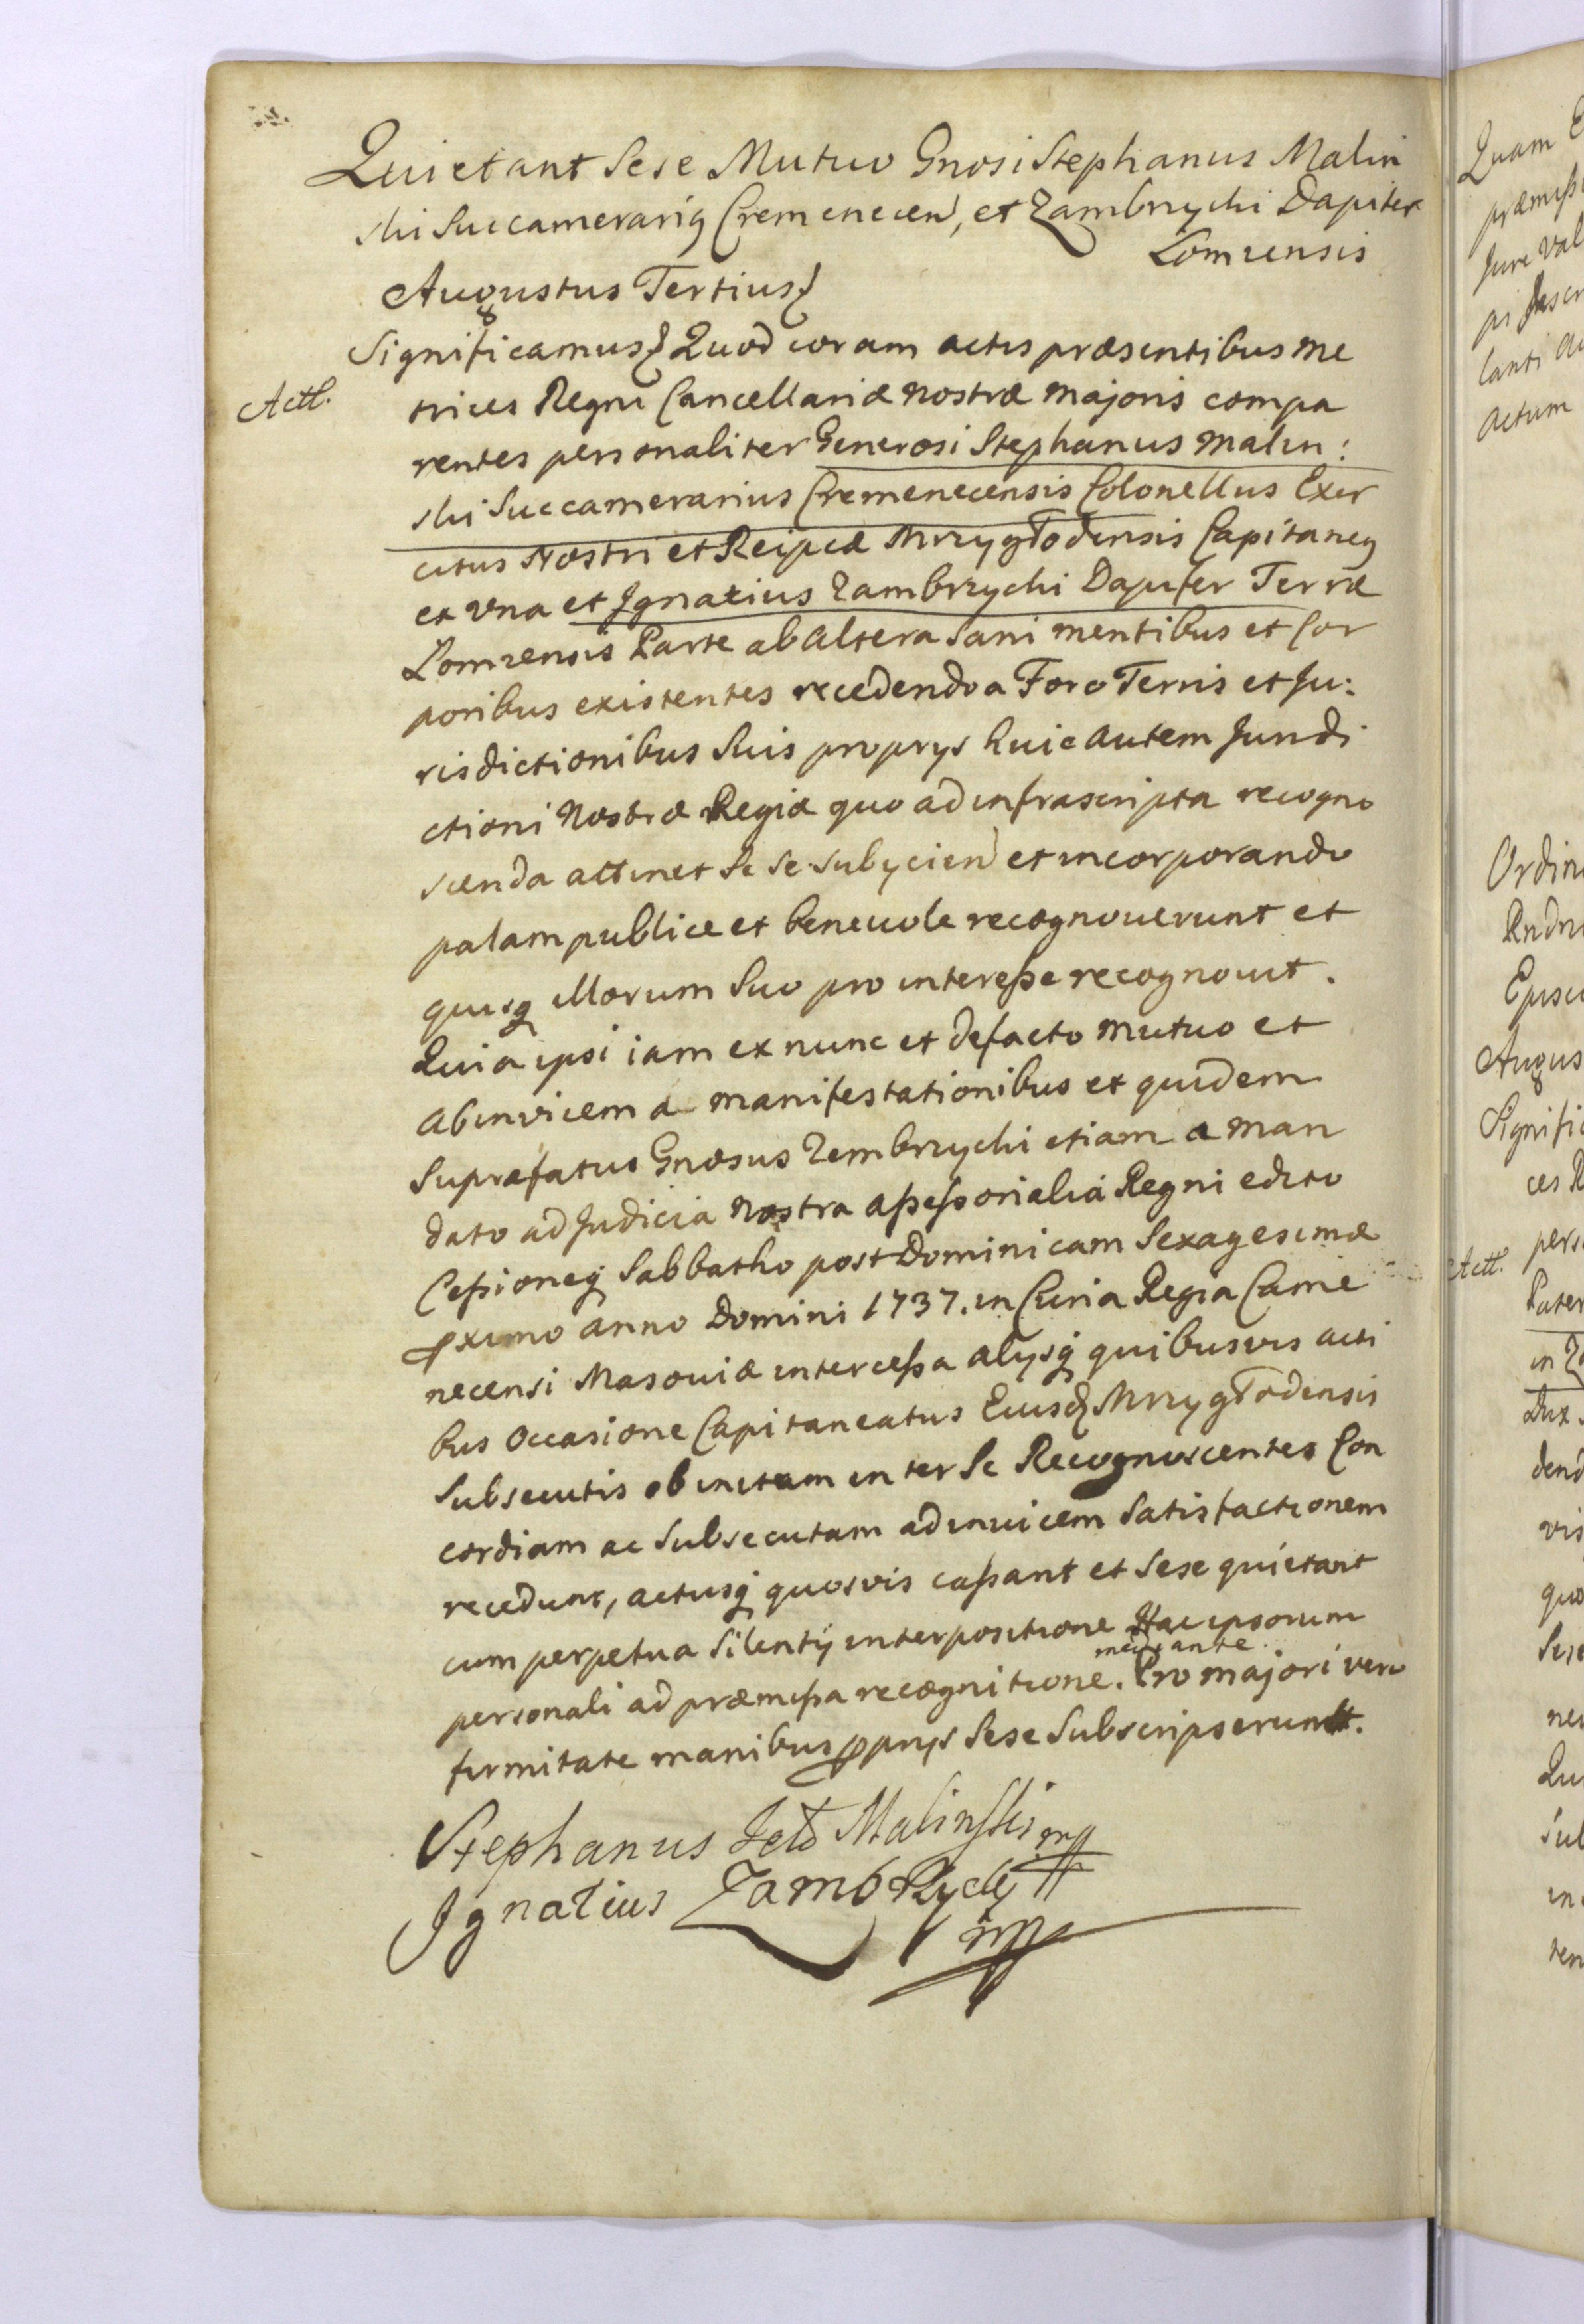 Quietant Sese Mutuo Gnosi Stephanus Malin
ski Succamerariꝯ Cremenecen, et Zambrzycki Dapifer
Łomzensis
Augustus Tertius
Significamus Quod coram actis præsentibus Me
Actl.
trices Regni Cancellariæ Nostræ Majoris compa
rentes personaliter Generosi Stephanus Malin:
ski Succamerarius Cremenecensis Colonellus Exer
citus Nostri et Reipcæ Mrzygłodensis Capitaneꝯ
ex una et Ignatius Zambrzycki Dapifer Terræ
Łomzensis Parte ab Altera Sani mentibus et Cor
poribus existentes recedendo a Foro Terris et Ju:
risdictionibus Suis proprys huic autem Jurisdi
ctioni Nostræ Regiæ quo ad infrascripta recogno
scenda attinet Se se subyciend et incorporando
palam publice et benevole recognoverunt et
quisq illorum Suo pro interesse recognovit.
Quia ipsi iam ex nunc et defacto mutuo et
ab invicem a manifestationibus et quidem
Suprafatus Gnosus Zembrzycki etiam a Man
dato ad Judicia Nostra assessorialia Regni edito
Cessioneq Sabbatho post Dominicam Sexagesimæ
pximo anno Domini 1737. in Curia Regia Came
necensi Masoviæ intercessa alysq quibusvis acti
bus occasione Capitaneatus Eiusd Mrzygłodensis
Subsecutis ob initam inter Se Recognoscentes Con
cordiam ac Subsecutam ad invicem Satisfactionem
recedunt, actusq quosvis cassant et Sese quietant
cum perpetua Silentij interpositione Hac ipsorum
mediante
personali ad præmissa recognitione. Pro majori vero
firmitate manibus pprijs Sese Subscripserunt.
Stephanus Jełō Malinski mp
Ignatius Zambrzycki
mpa
Quam
præmiss
Jure val
lanti
actum
Ordin
Rndm
Augus
Signific
ces R
pers
Actl.
Pater
in
Dux
dend
vis
quo
Sese